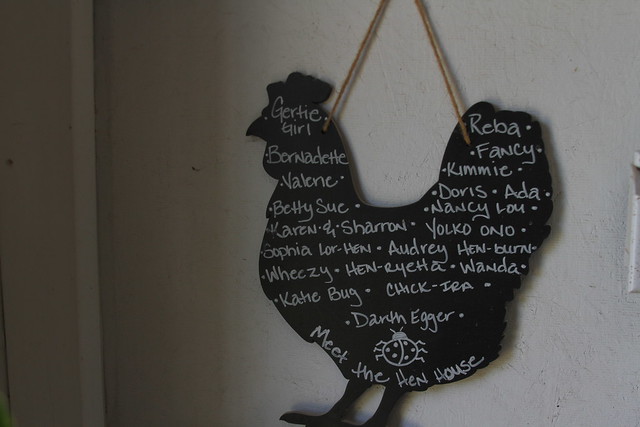 Gertie
Girl
Bernadette
Valerie
Reba
Fancy
Kimmie
Doris · Ada
Betty Sue · Nancy Lou
Karen & Sharron · YOLKO ONO
Sophia Lor-HEN · Audrey HEN-burn
Wheezy · HEN-RYEttA · Wanda
Katie Bug · CHICK-IRA
Darth Egger
Meet the HEN HOUSE